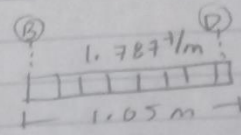 B D
1.787 T/m
1.05 m